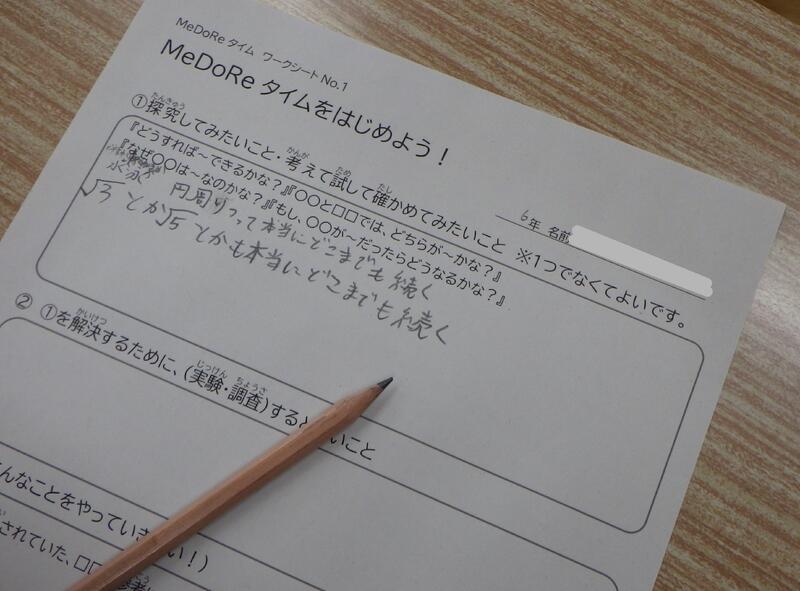 MeDoRe タイム ワークシート No.1
MeDoRe タイムをはじめよう！
6年 名前
①探究してみたいこと・考えて試して確かめてみたいこと ※1つでなくてよいです。
たんきゅう かんが ため たし
『どうすれば～できるかな？』『〇〇と□□では、どちらが～かな？』
『なぜ〇〇は～なのかな？』『もし、〇〇が～だったらどうなるかな？』
円周りつって本当にどこまでも続く
√3とか√5とかも本当にどこまでも続く
② ①を解決するために、(実験・調査)すると いこと
かいけつ じっけん ちょうさ
んなことをやっていき い！)
されていた、□□